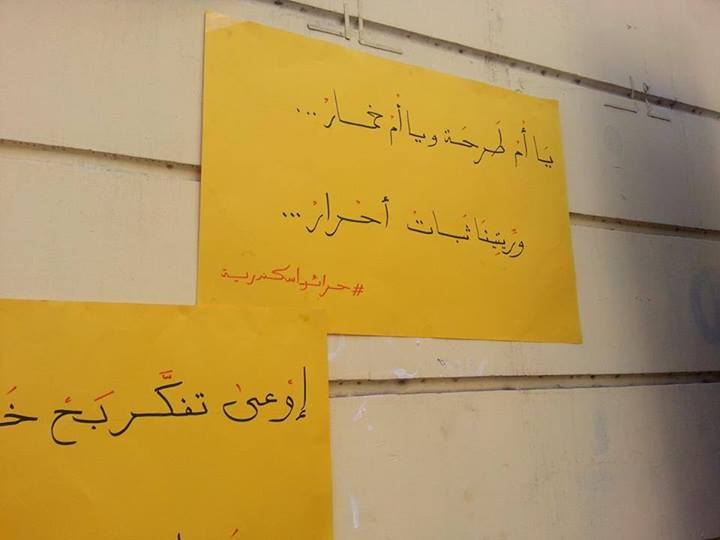 يَا أُمْ طَرحَة ويا أمْ خمـارْ...
ورَّيتِينَا ثَبـاتْ أحْـرارْ...
#حرائر_اسكندرية
إوْعىٰ تفكَّـر بَحْ